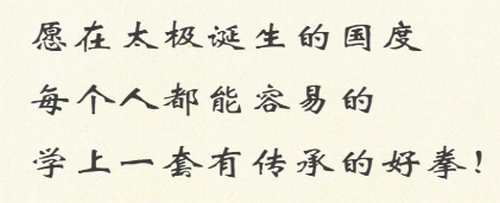 愿在太极诞生的国度
每个人都能容易的
学上一套有传承的好拳!